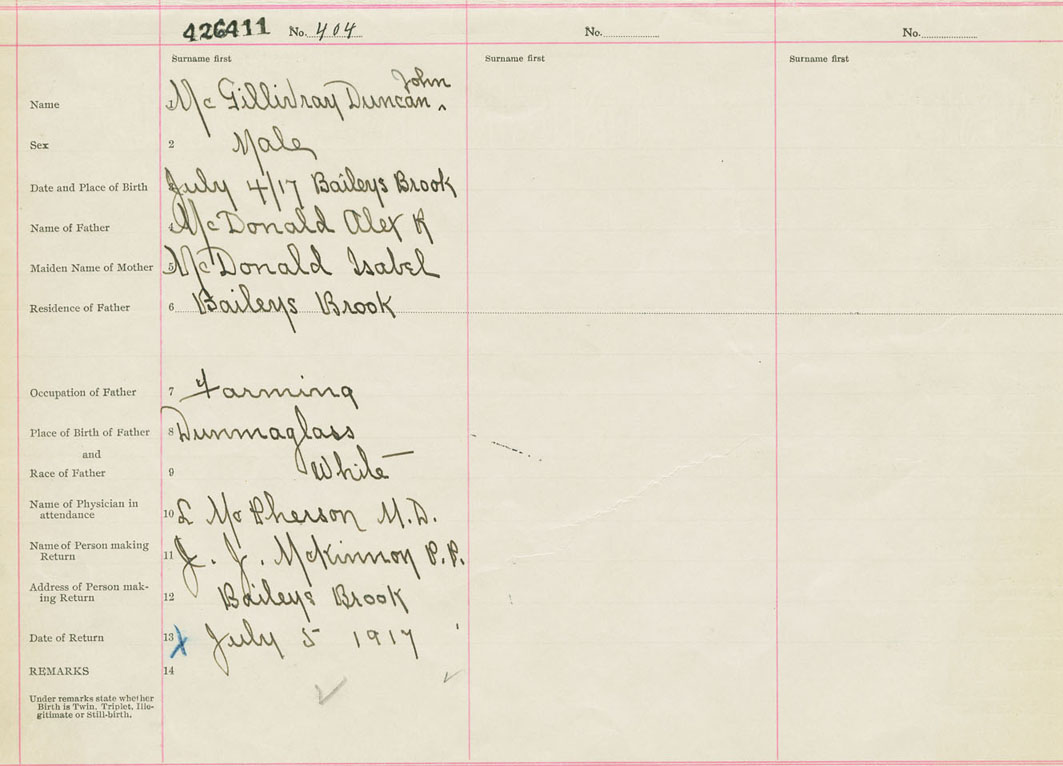 426411 No. 404 No. No.
Surname first Surname first Surname first
John
Name 1 McGillivray Duncan ^
Sex 2 Male
Date and Place of Birth 3 July 4/17 Baileys Brook
Name of Father 4 McDonald Alex R
Maiden Name of Mother 5 McDonald Isabel
Residence of Father 6 Baileys Brook
Occupation of Father 7 Farming
Place of Birth of Father 8 Dunmaglass
and
Race of Father 9 White
Name of Physician in
attendance 10 L McPherson M.D.
Name of Person making
Return 11 J. J. McKinnon P.P.
Address of Person mak-
ing Return 12 Baileys Brook
Date of Return 13 X July 5 1917
REMARKS 14
Under remarks state whether
Birth is Twin, Triplet, Ille-
gitimate or Still-birth.